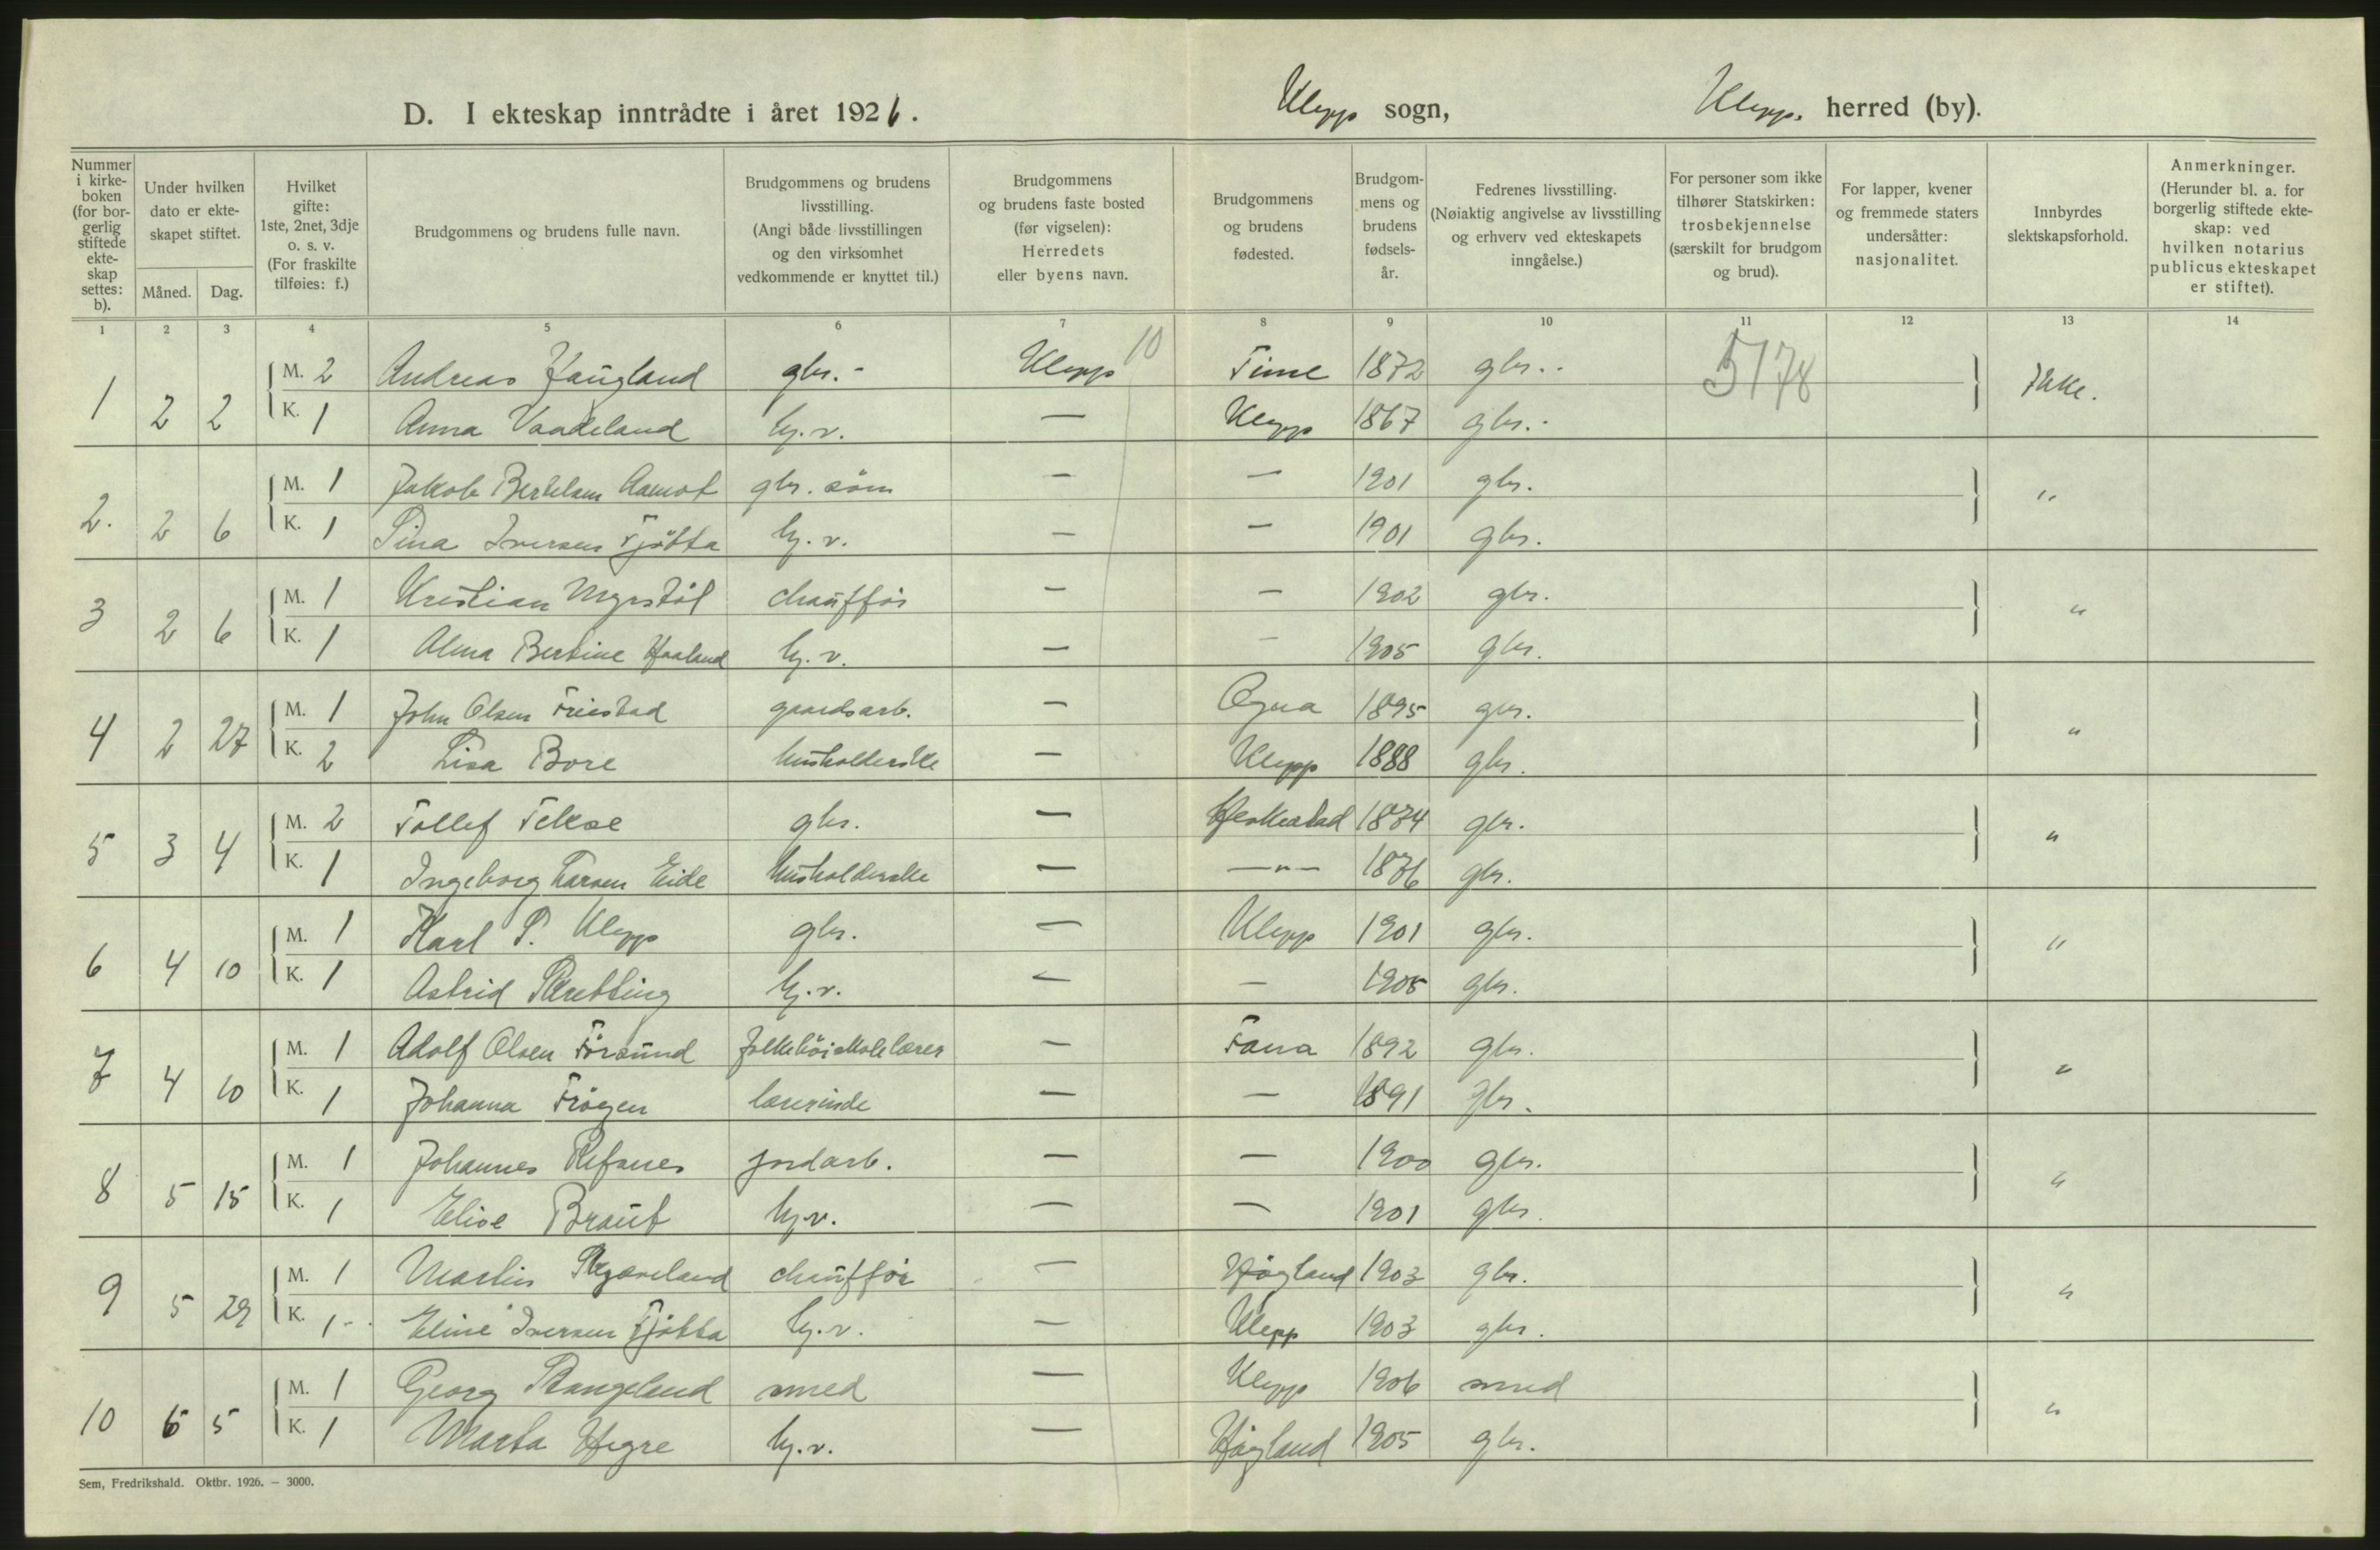 D. I ekteskap inntrådte i året 1926. Klepp sogn, Klepp. herred (by).
Nummer i kirkeboken (for borgerlig stiftede ekteskap settes: b).
Under hvilken dato er ekteskapet stiftet.
Måned. Dag.
Hvilket gifte: 1ste, 2net, 3dje o. s. v. (For fraskilte tilføies: f.)
Brudgommens og brudens fulle navn.
Brudgommens og brudens livsstilling. (Angi både livsstillingen og den virksomhet vedkommende er knyttet til.)
Brudgommens og brudens faste bosted (før vigselen): Herredets eller byens navn.
Brudgommens og brudens fødested.
Brudgommens og brudens fødselsår.
Fedrenes livsstilling. (Nøiaktig angivelse av livsstilling og erhverv ved ekteskapets inngåelse.)
For personer som ikke tilhører Statskirken: trosbekjennelse (særskilt for brudgom og brud).
For lapper, kvener og fremmede staters undersåtter: nasjonalitet.
Innbyrdes slektskapsforhold.
Anmerkninger. (Herunder bl. a. for borgerlig stiftede ekteskap: ved hvilken notarius publicus ekteskapet er stiftet).
1 2 3 4 5 6 7 8 9 10 11 12 13 14
10 5178
1 2 2 M. 2 Andreas Haugland gbr. - Klepp Time 1872 gbr. - Ikke.
K. 1 Anna Vaadeland hj. v. — Klepp 1867 gbr. -
2. 2 6 M. 1 Jakob Bertelsen Aamot gbr. søn — — 1901 gbr. "
K. 1 Sina Iversen Tjøtta hj. v. — — 1901 gbr.
3 2 6 M. 1 Kristian Myrstøl chauffør — — 1902 gbr. "
K. 1 Alma Bertine Haaland hj. v. — — 1905 gbr.
4 2 27 M. 1 John Olsen Friestad gaardsarb. — Ogna 1895 gbr. "
K. 2 Lisa Bore husholderske — Klepp 1888 gbr.
5 3 4 M. 2 Tollef Tekse gbr. — Heskestad 1874 gbr. "
K. 1 Ingeborg Larsen Eide husholderske — —"— 1876 gbr.
6 4 10 M. 1 Karl P. Klepp gbr. — Klepp 1901 gbr. "
K. 1 Astrid Skretting hj. v. — — 1905 gbr.
7 4 10 M. 1 Adolf Olsen Førsund folkehøiskolelærer — Fana 1892 gbr. "
K. 1 Johanna Frøgen lærerinde — — 1891 gbr.
8 5 15 M. 1 Johannes Refsnes jordarb. — — 1900 gbr. "
K. 1 Elise Braut hj. v. — — 1901 gbr.
9 5 29 M. 1 Martin Skjæveland chauffør — Høgland 1903 gbr. "
K. 1 Eline Iversen Tjøtta hj. v. — Klepp 1903 gbr.
10 6 5 M. 1 Georg Stangeland smed — Klepp 1906 smed "
K. 1 Marta Hegre hj. v. — Høgland 1905 gbr.
Sem, Fredrikshald. Oktbr. 1926. — 3000.